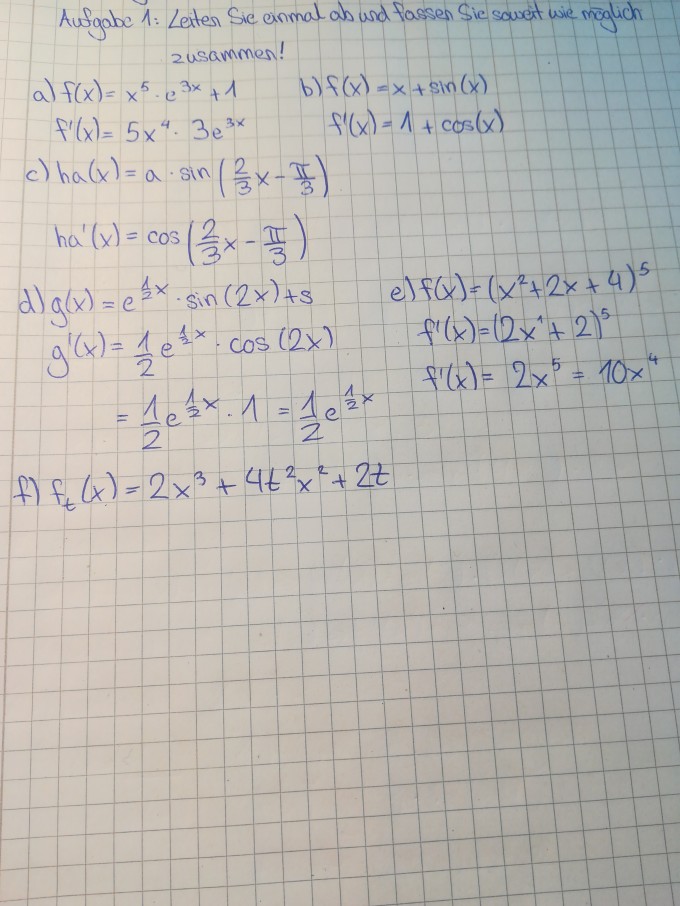 Aufgabe 1: Leiten Sie einmal ab und fassen Sie soweit wie möglich
zusammen!
a) f(x) = x⁵ · e³ˣ + 1
f'(x) = 5x⁴ · 3e³ˣ
b) f(x) = x + sin(x)
f'(x) = 1 + cos(x)
c) ha(x) = a · sin(2/3 x - π/3)
ha'(x) = cos(2/3 x - π/3)
d) g(x) = e^(1/2 x) · sin(2x) + s
g'(x) = 1/2 e^(1/2 x) · cos(2x)
= 1/2 e^(1/2 x) · 1 = 1/2 e^(1/2 x)
e) f(x) = (x² + 2x + 4)⁵
f'(x) = (2x¹ + 2)⁵
f'(x) = 2x⁵ = 10x⁴
f) fₜ(x) = 2x³ + 4t²x² + 2t